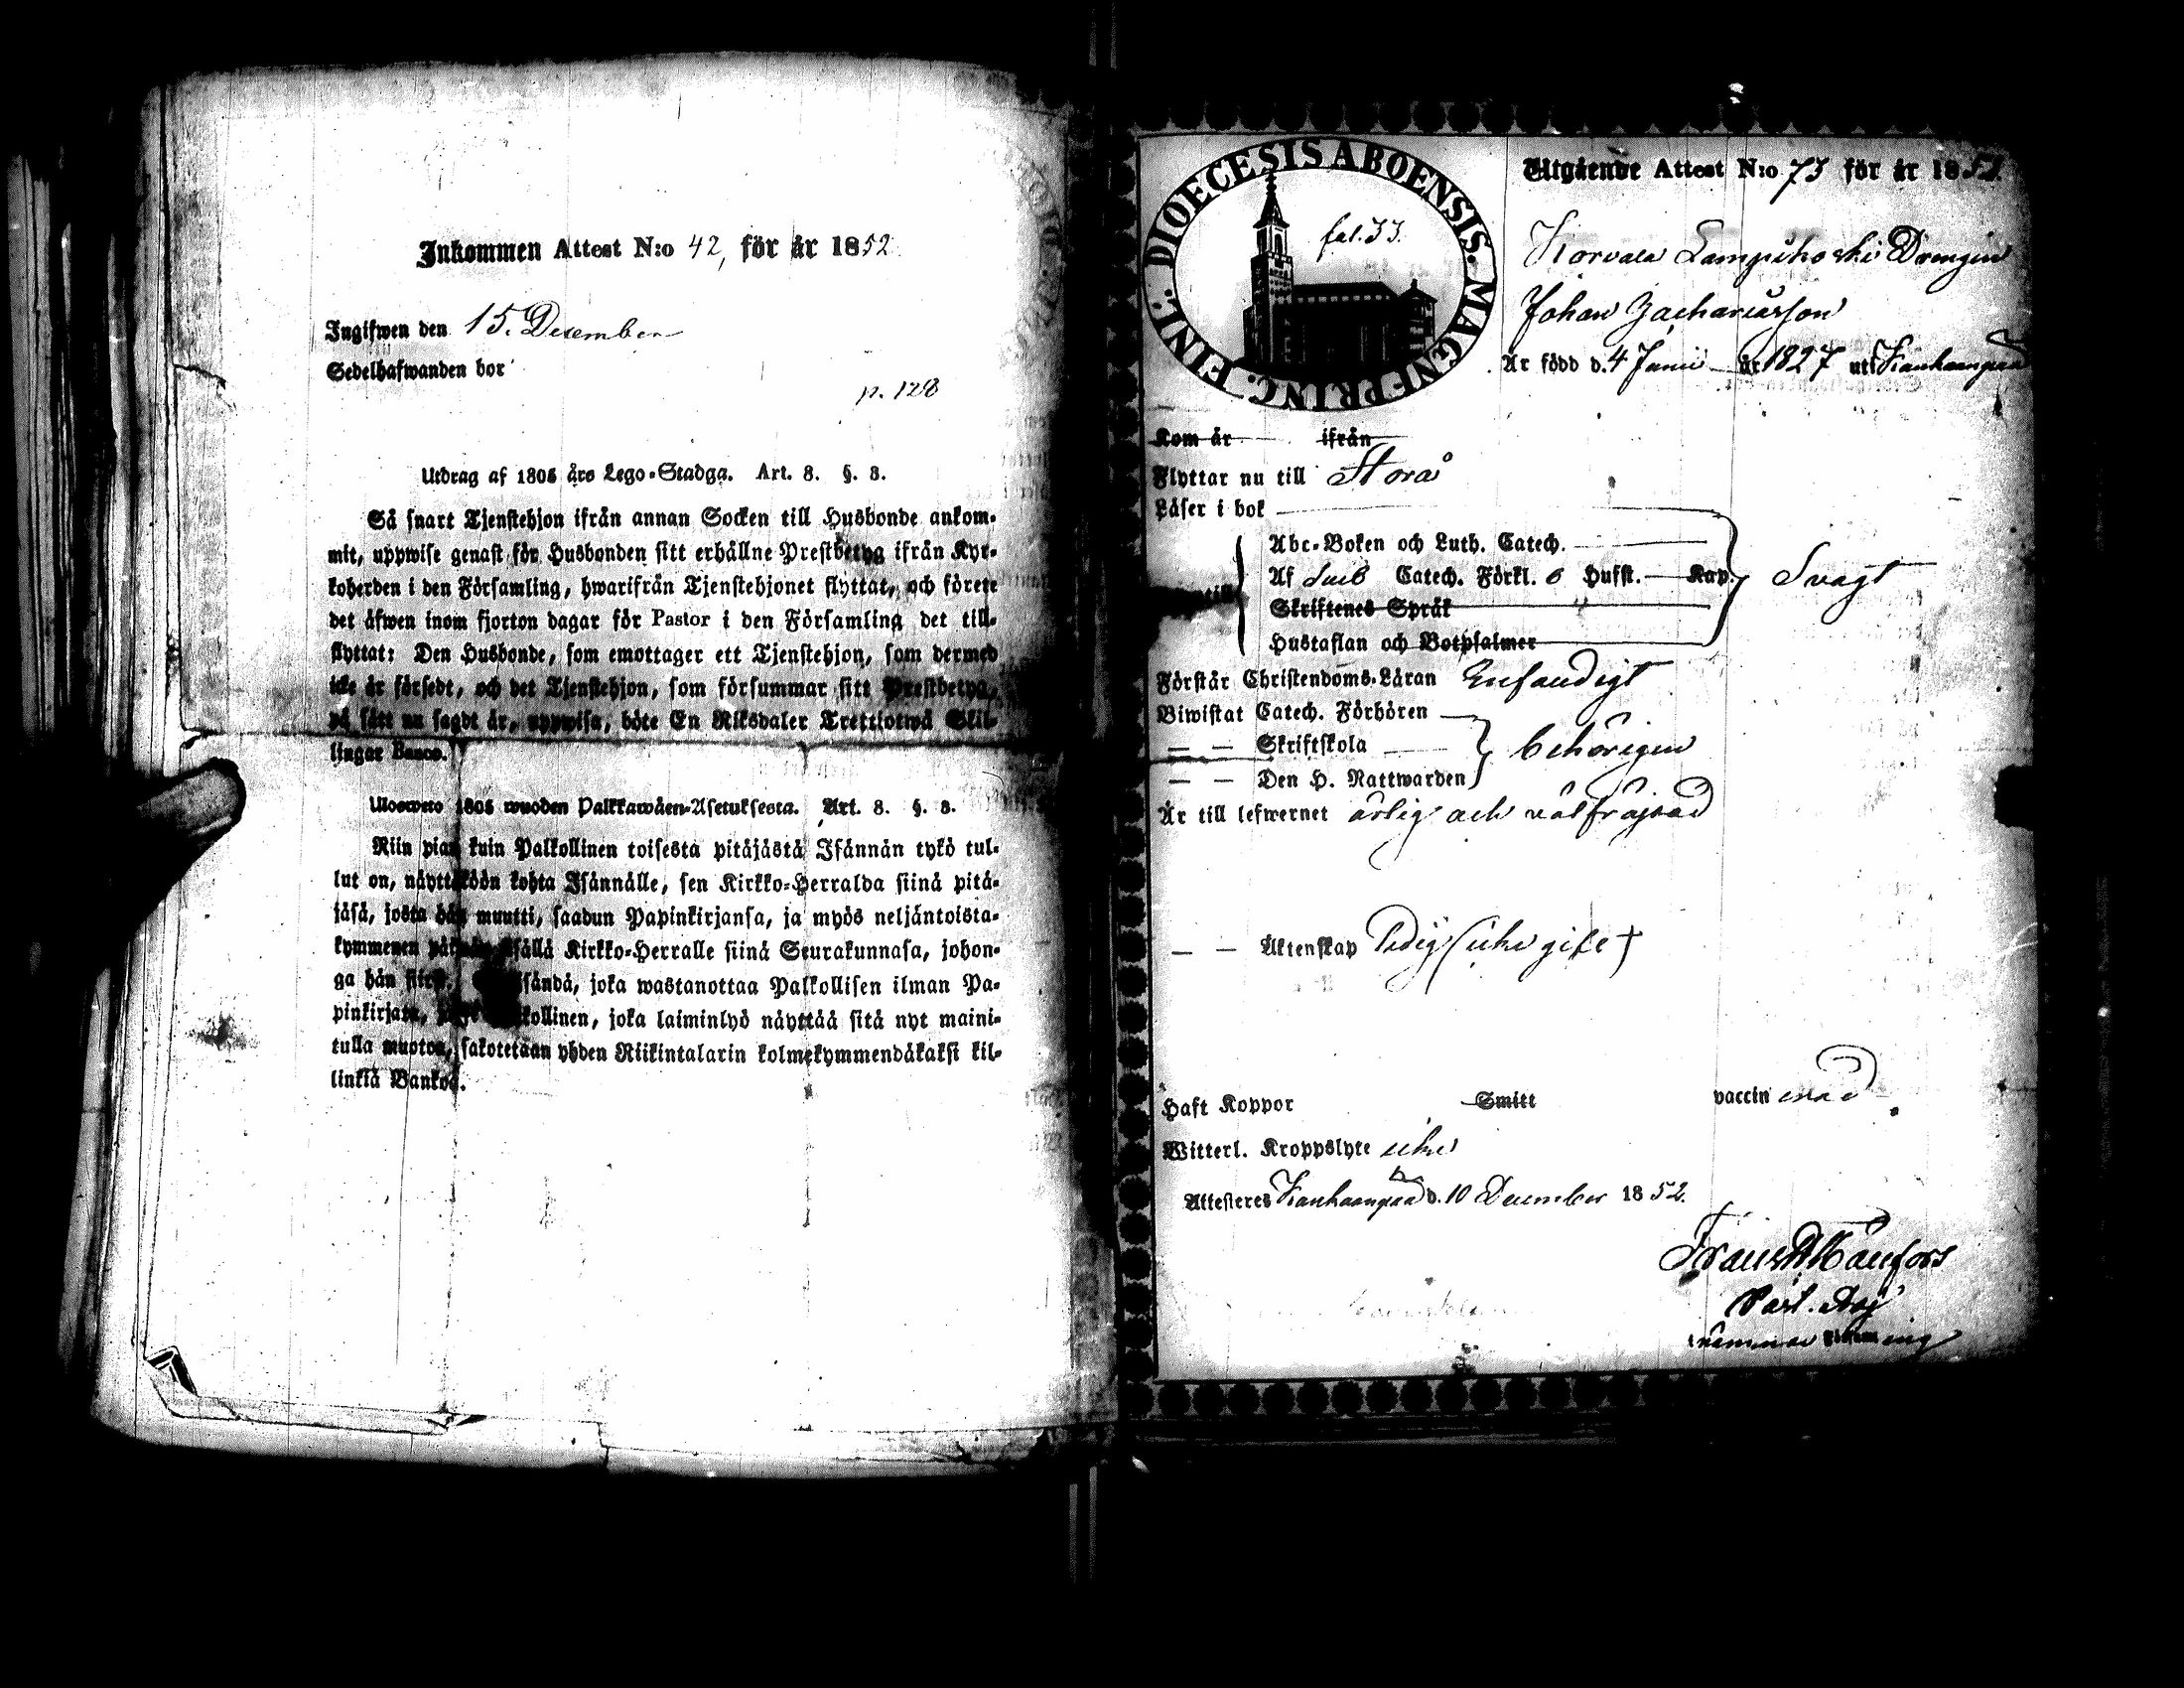 Inkommen Attest N:o 42, för år 1852
Ingifwen den 15. December
Sedelhafwanden bor
p. 128
Utdrag af 1805 års Lego-Stadga. Art. 8. §. 3.
Så snart Tjenstehjon ifrån annan Socken till Husbonde ankom-
mit, uppwise genast för Husbonden sitt erhållne Prestbetyg ifrån Kyr-
koherden i den Församling, hwarifrån Tjenstehjonet flyttat, och förete
det äfwen inom fjorton dagar för Pastor i den Församling det till-
flyttat: Den Husbonde, som emottager ett Tjenstehjon, som dermed
icke är försedt, och det Tjenstehjon, som försummar sitt Prestbetyg,
på sätt nu sagdt är, uppwisa, böte En Riksdaler Trettiotwå Skil-
lingar Banco.
Ulosweto 1805 wuoden Palkkawäen-Asetuksesta. Art. 8. §. 3.
Niin pian kuin Palkollinen toisesta pitäjästä Isännän tykö tul-
lut on, näyttäköön kohta Isännälle, sen Kirkko-Herralda siinä pitä-
jäsä, josta hän muutti, saadun Papinkirjansa, ja myös neljäntoista-
kymmenen päiwän sisällä Kirkko-Herralle siinä Seurakunnasa, johon-
ga hän siirsi. Isändä, joka wastanottaa Palkollisen ilman Pa-
pinkirjata, Palkollinen, joka laiminlyö näyttää sitä nyt maini-
tulla muotoa, sakotetaan yhden Riikintalarin kolmekymmendäkaksi kil-
linkiä Bankoa.
DIOECESIS ABOENSIS. MAGN. PRINC. FINL.
fol. 33.
Utgående Attest N:o 73 för år 1852
Korvala Lampuhoski Drengen
Johan Zachariasson
Är född d. 4 Junii år 1827 uti Kankaanpää
Kom år ifrån
Flyttar nu till Storå
Läser i bok
Abc-Boken och Luth. Catech.
Af Catech. Förkl. 6 Hufst. Kap.
till
Svagt
Skriftenes Språk
Hustaflan och Botpsalmer
Förstår Christendoms-Läran Enfaldigt
Biwistat Catech. Förhören
— — Skriftskola
behörigen
— — Den H. Nattwarden
Är till lefwernet ärlig och välfräjdad
— — Äktenskap Ledig (icke gift)
Haft Koppor Smitt vaccinerad
Witterl. Kroppslyte icke
Attesteras Kankaanpää d. 10 December 1852.
Frans Månfors
Past. Adj